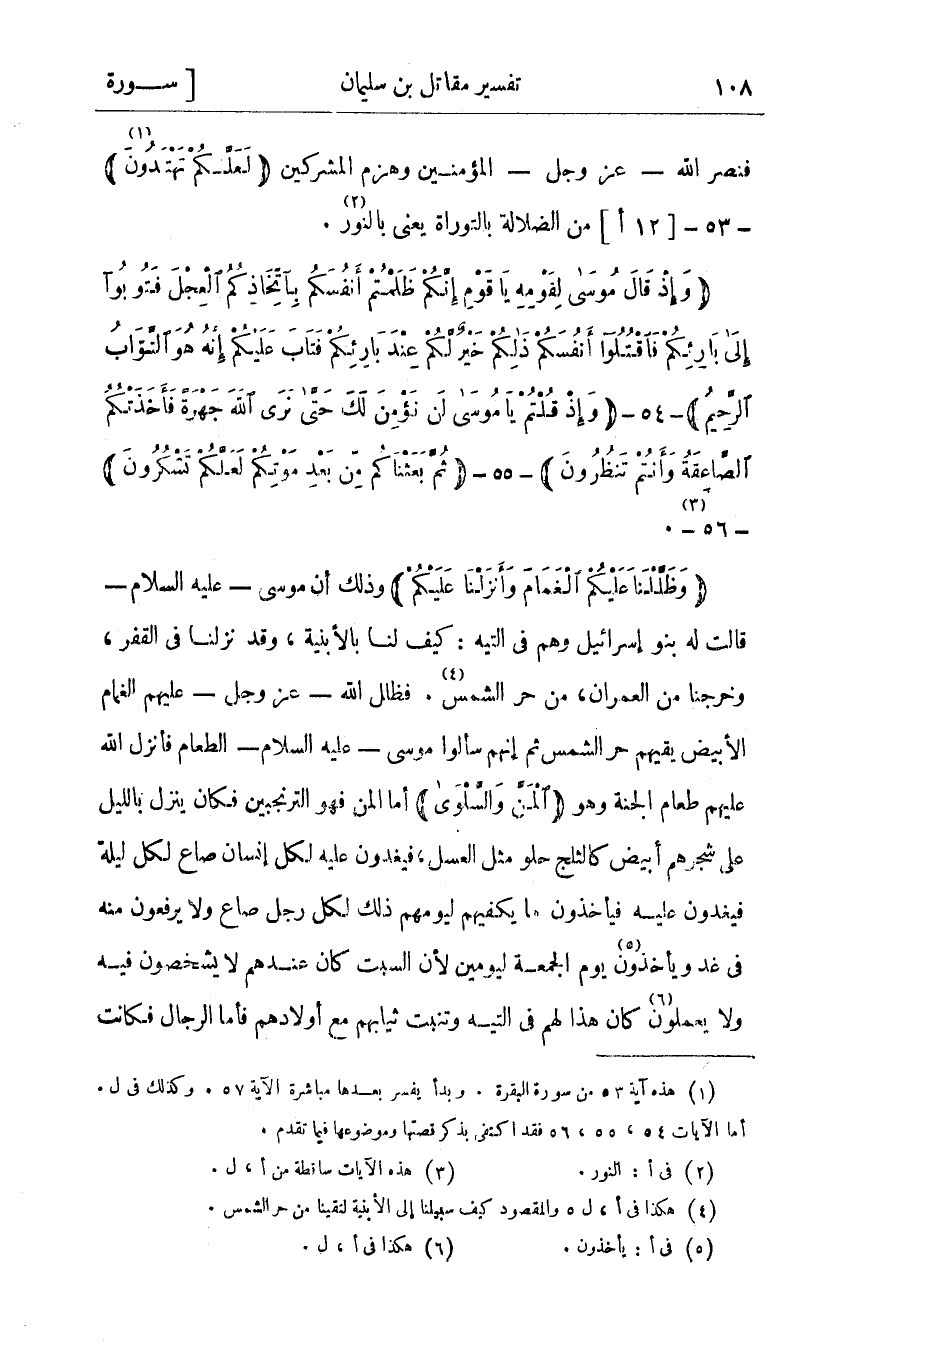 ١٠٨ تفسير مقاتل بن سليمان [ ســـورة
فنصر الله — عز وجل — المؤمنــين وهزم المشركين ﴿ لَعَلَّــكُمْ تَهْتَدُونَ ﴾ (١)
– ٥٣ – [ ١٢ أ ] من الضلالة بالتوراة يعنى بالنور (٢) .
﴿ وَإِذْ قَالَ مُوسَىٰ لِقَوْمِهِ يَا قَوْمِ إِنَّكُمْ ظَلَمْتُمْ أَنفُسَكُم بِٱتِّخَاذِكُمُ ٱلْعِجْلَ فَتُوبُوٓا
إِلَىٰ بَارِئِكُمْ فَٱقْتُلُوٓا أَنفُسَكُمْ ذَٰلِكُمْ خَيْرٌ لَّكُمْ عِندَ بَارِئِكُمْ فَتَابَ عَلَيْكُمْ إِنَّهُ هُوَ ٱلتَّوَّابُ
ٱلرَّحِيمُ ﴾ – ٥٤ – ﴿ وَإِذْ قُلْتُمْ يَا مُوسَىٰ لَن نُّؤْمِنَ لَكَ حَتَّىٰ نَرَى ٱللَّهَ جَهْرَةً فَأَخَذَتْكُمُ
ٱلصَّاعِقَةُ وَأَنتُمْ تَنظُرُونَ ﴾ – ٥٥ – ﴿ ثُمَّ بَعَثْنَاكُم مِّن بَعْدِ مَوْتِكُمْ لَعَلَّكُمْ تَشْكُرُونَ ﴾
– ٥٦ – (٣) .
﴿ وَظَلَّلْنَا عَلَيْكُمُ ٱلْغَمَامَ وَأَنزَلْنَا عَلَيْكُمُ ﴾ وذلك أن موسى — عليه السلام —
قالت له بنو إسرائيل وهم فى التيه : كيف لنــا بالأبنية ، وقد نزلنــا فى القفر ،
وخرجنا من العمران، من حر الشمس (٤) . فظلل الله — عز وجل — عليهم الغمام
الأبيض يقيهم حر الشمس ثم إنهم سألوا موسى — عليه السلام — الطعام فأنزل الله
عليهم طعام الجنة وهو ﴿ ٱلْمَنَّ وَٱلسَّلْوَىٰ ﴾ أما المن فهو الترنجبين فكان ينزل بالليل
على شجرهم أبيض كالثلج حلو مثل العسل ، فيغدون عليه لكل إنسان صاع لكل ليلة
فيغدون عليــه فيأخذون ما يكفيهم ليومهم ذلك لكل رجل صاع ولا يرفعون منه
فى غد ويأخذون (٥) يوم الجمعــة ليومين لأن السبت كان عنــدهم لا يشخصون فيــه
ولا يعملون (٦) كان هذا لهم فى التيــه وتنبت ثيابهم مع أولادهم فأما الرجال فكانت
(١) هذه آية ٥٣ من سورة البقرة . وبدأ يفسر بعــدها مباشرة الآية ٥٧ . وكذلك فى ل .
أما الآيات ٥٤ ، ٥٥ ، ٥٦ فقد اكتفى بذكر قصتها وموضوعها فيما تقدم .
(٢) فى أ : النور . (٣) هذه الآيات ساقطة من أ ، ل .
(٤) هكذا فى أ ، ل ٥ والمقصود كيف سبيلنا إلى الأبنية لتقينا من حر الشمس .
(٥) فى أ : يأخذون . (٦) هكذا فى أ ، ل .